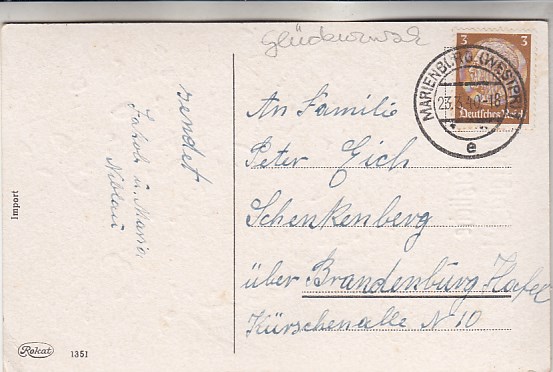 Glückwunsch
3 3
MARIENBURG (WESTPR)
23.3.40-18
Deutsches Reich
e
sendet
Jakob u. Maria
Niklau
An Familie
Peter Eich
Schenkenberg
über Brandenburg-Hafel
Kürschenalle N 10
Import
Rokat 1351